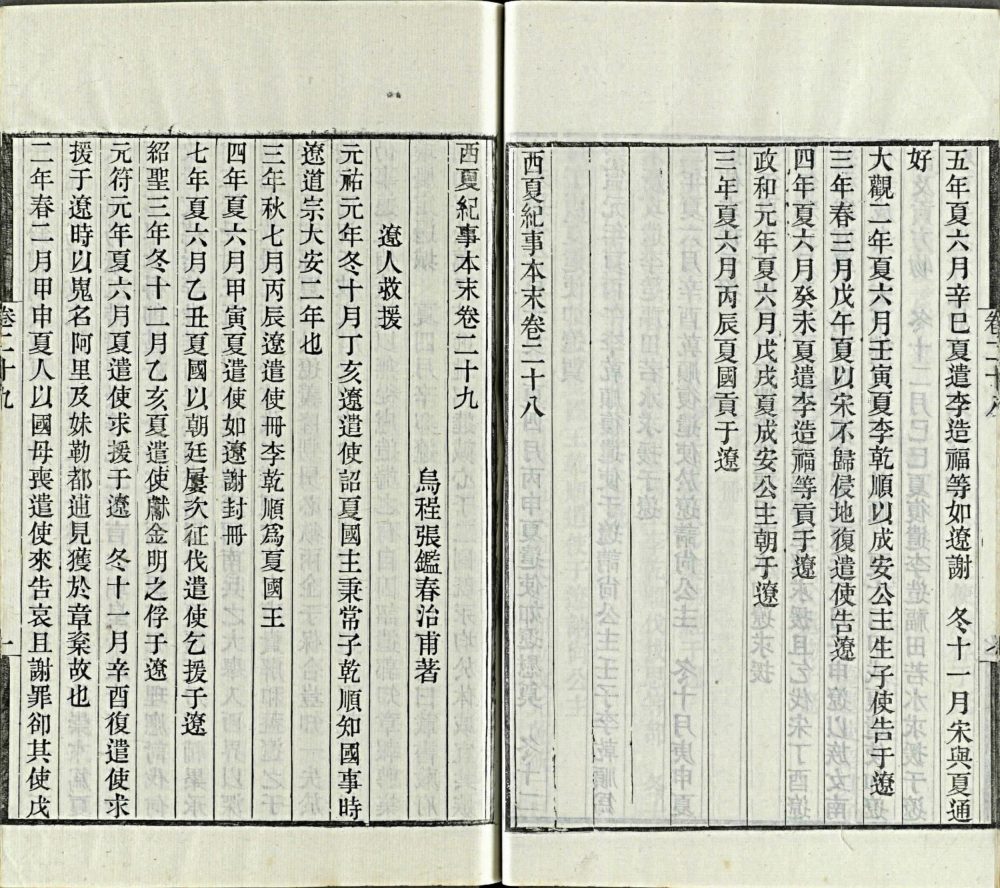 五年夏六月辛巳夏遣李造福等如遼謝　冬十一月宋與夏通
好
大觀二年夏六月壬寅夏李乾順以成安公主生子使告于遼
三年春三月戊午夏以宋不歸侵地復遣使告遼
四年夏六月癸未夏遣李造福等貢于遼
政和元年夏六月戊戌夏成安公主朝于遼
三年夏六月丙辰夏國貢于遼
西夏紀事本末卷二十八
卷二十八
西夏紀事本末卷二十九
烏程張鑑春治甫著
遼人救援
元祐元年冬十月丁亥遼遣使詔夏國主秉常子乾順知國事時
遼道宗大安二年也
三年秋七月丙辰遼遣使冊李乾順爲夏國王
四年夏六月甲寅夏遣使如遼謝封冊
七年夏六月乙丑夏國以朝廷屢次征伐遣使乞援于遼
紹聖三年冬十二月乙亥夏遣使獻金明之俘于遼
元符元年夏六月夏遣使求援于遼　冬十一月辛酉復遣使求
援于遼時以嵬名阿里及妹勒都逋見獲於章楶故也
二年春二月甲申夏人以國母喪遣使來告哀且謝罪卻其使戊
卷二十九
一